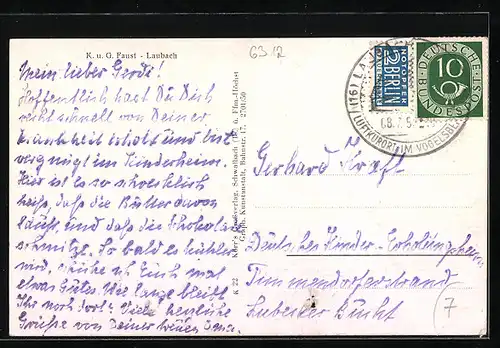 K. u. G. Faust - Laubach
6312
Mein lieber Gerdi!
Hoffentlich hast Du Dich
recht schnell von Deiner
Krankheit erholt und bist
vergnügt im Kinderheim.
Hier ist es so schrecklich
heiß, daß die Butter davon
läuft, und daß die Schokola
schmilzt. So bald es kühler
wird, schicke ich Euch mal
etwas Gutes. Wie lange bleibt
Ihr noch dort? Viele herzliche
Grüße von Deiner treuen Oma.
K 22
Graph. Kunstanstalt, Bahnstr. 17,
NOTOPFER
2 BERLIN
STEUERMARKE
DEUTSCHE
BUNDESPOST
10
(16) LAUBACH
LUFTKURORT IM VOGELSBERG
Gerhard Kraft
Deutsches Kinder-Erholungsheim
Timmendorferstrand
Lübecker Bucht
7